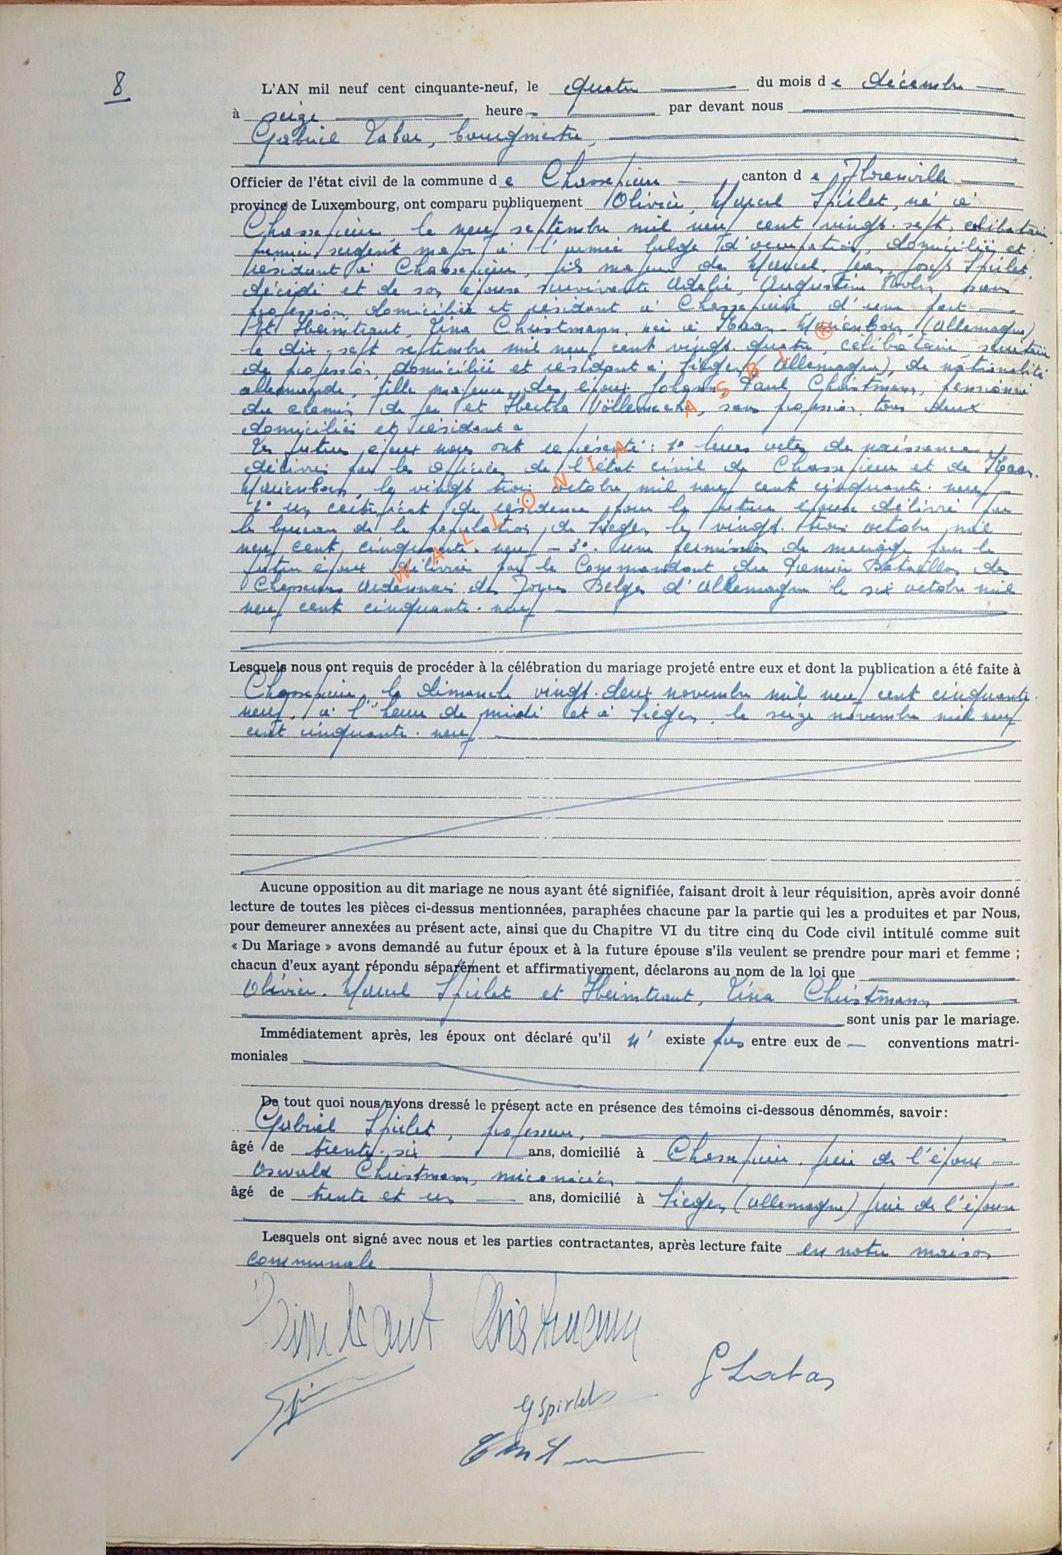 8
L'AN mil neuf cent cinquante-neuf, le quatre du mois de décembre
à seize heure par devant nous
Gabriel Labar, bourgmestre,
Officier de l'état civil de la commune de Chassepierre canton de Florenville
province de Luxembourg, ont comparu publiquement Olivier, Marcel Spirlet, né à
Chassepierre le neuf septembre mil neuf cent vingt-sept, célibataire
premier sergent major à l'armée belge d'occupation, domicilié et
résidant à Chassepierre, fils majeur de Marcel, Jean, Joseph Spirlet,
décédé et de son épouse survivante Adélie, Augustine sans
profession, domiciliée et résidant à Chassepierre d'une part
Et Heimtraut, Lina Christmann, née à Haan (Allemagne)
le dix-sept septembre mil neuf cent vingt-quatre, célibataire, secrétaire
de profession, domiciliée et résidant à Siegen (Allemagne), de nationalité
allemande, fille majeure des époux Johann, Paul Christmann, pensionné
du chemin de fer et Hertha sans profession, tous deux
domiciliés et résidant à
Les futurs époux nous ont représenté : 1° leurs actes de naissance
délivrés par les officiers de l'état civil de Chassepierre et de Haan-
le vingt trois octobre mil neuf cent cinquante-neuf
2° un certificat de résidence pour la future épouse délivré par
le bureau de la population de Siegen le vingt trois octobre mil
neuf cent cinquante-neuf - 3° une permission de mariage pour le
futur époux délivrée par le Commandant du Premier Bataillon de
Chasseurs Ardennais des Forces Belges d'Allemagne le six octobre mil
neuf cent cinquante-neuf
Lesquels nous ont requis de procéder à la célébration du mariage projeté entre eux et dont la publication a été faite à
Chassepierre, le dimanche vingt-deux novembre mil neuf cent cinquante-
neuf, à l'heure de midi et à Siegen, le seize novembre mil neuf
cent cinquante-neuf
Aucune opposition au dit mariage ne nous ayant été signifiée, faisant droit à leur réquisition, après avoir donné
lecture de toutes les pièces ci-dessus mentionnées, paraphées chacune par la partie qui les a produites et par Nous,
pour demeurer annexées au présent acte, ainsi que du Chapitre VI du titre cinq du Code civil intitulé comme suit
« Du Mariage » avons demandé au futur époux et à la future épouse s'ils veulent se prendre pour mari et femme ;
chacun d'eux ayant répondu séparément et affirmativement, déclarons au nom de la loi que
Olivier, Marcel Spirlet et Heimtraut, Lina Christmann
sont unis par le mariage.
Immédiatement après, les époux ont déclaré qu'il n' existe pas entre eux de conventions matri-
moniales
De tout quoi nous avons dressé le présent acte en présence des témoins ci-dessous dénommés, savoir :
Gabriel Spirlet, professeur,
âgé de trente-six ans, domicilié à Chassepierre, frère de l'époux
Oswald Christmann, mécanicien,
âgé de trente et un ans, domicilié à Siegen (Allemagne) frère de l'épouse
Lesquels ont signé avec nous et les parties contractantes, après lecture faite en notre maison
communale
Heimtraut Christmann
G Labar
G Spirlet
WALLONIA ASBL ®